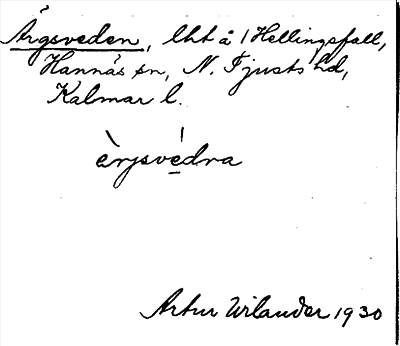 Ärgsveden, lht å 1 Hellingsfall,
Hannäs sn, N. Tjusts hd,
Kalmar l.
èrjsvédra
Artur Wilander 1930